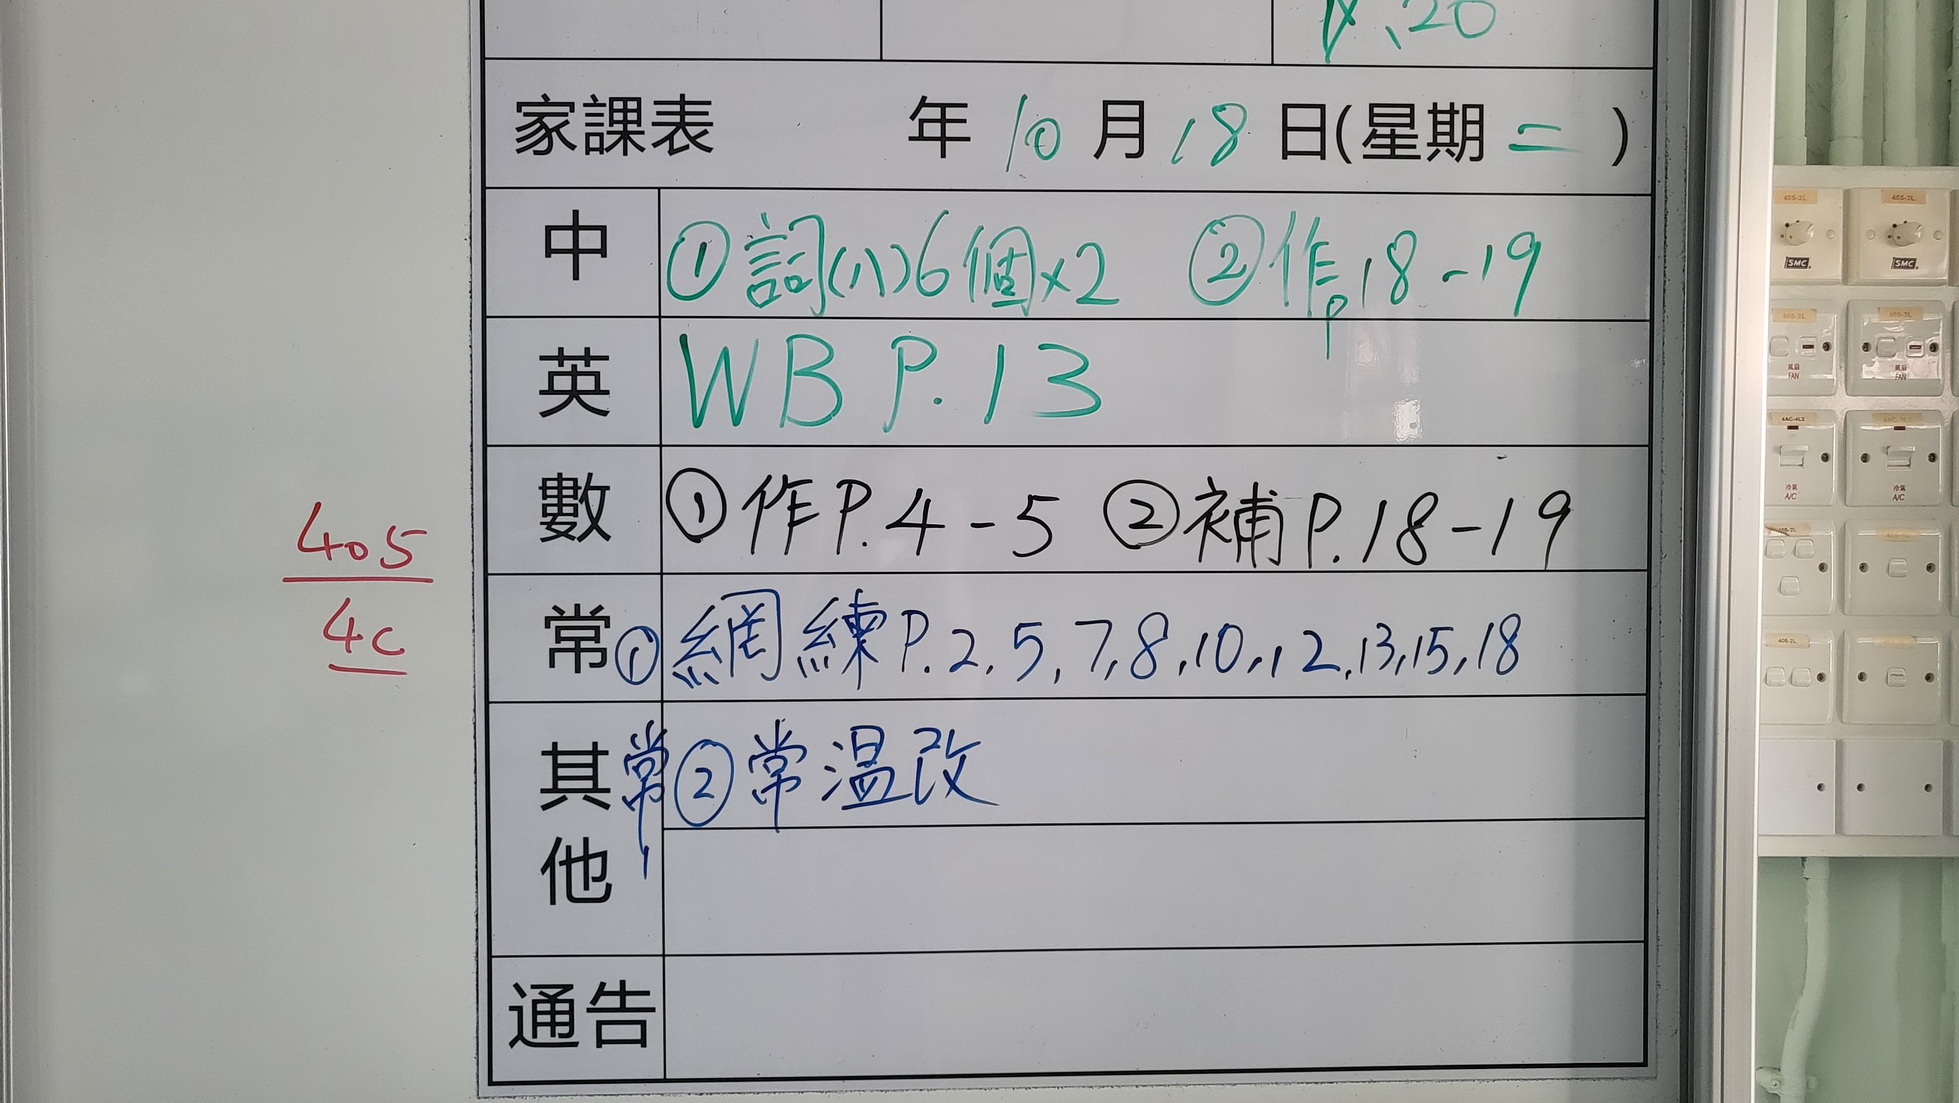 、20
家課表 年 10 月 18 日(星期 二 )
中 ①詞(八)6個×2 ②作p18-19
英 WB P.13
數 ①作P.4-5 ②補P.18-19
常 ①網練P.2,5,7,8,10,12,13,15,18
其他 常②常温改
通告
405
4C
405-2L
405-2L
SMC
SMC
風扇
FAN
風扇
FAN
冷氣
A/C
冷氣
A/C